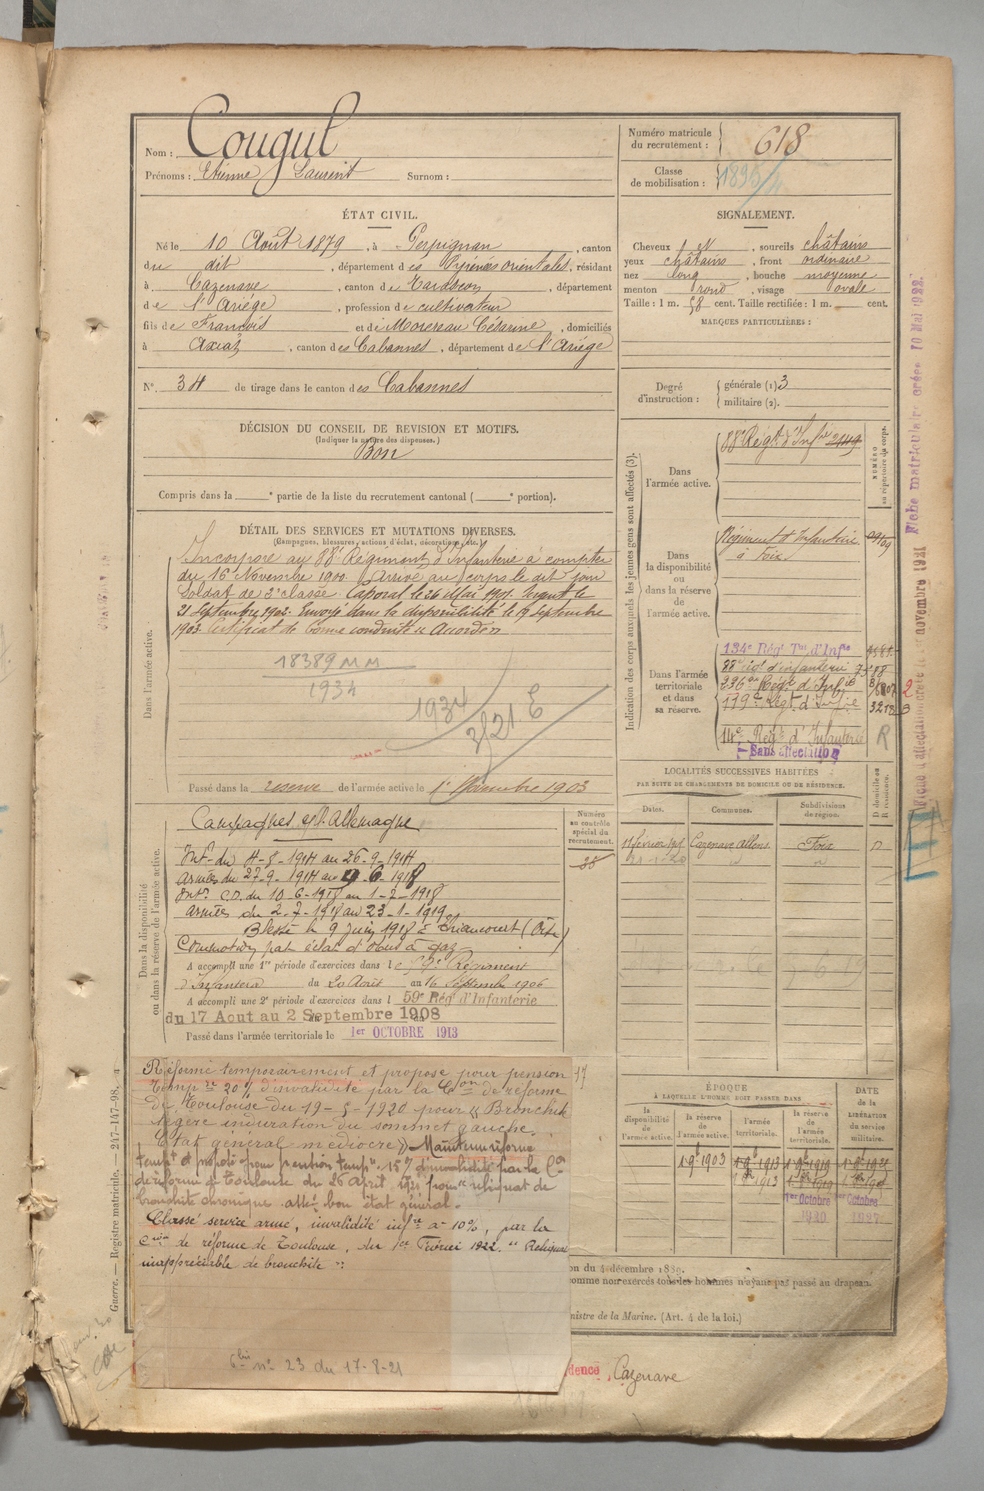 Nom : Cougul
Prénoms : Etienne Laurent Surnom :
Numéro matricule du recrutement : 618
Classe de mobilisation : 1895
ÉTAT CIVIL.
Né le 10 Août 1879, à Perpignan, canton
du dit, département des Pyrénées orientales, résidant
à Cazenave, canton de Tarascon, département
de l'Ariège, profession de cultivateur
fils de François et de Morereau Césarine, domiciliés
à Axiat, canton des Cabannes, département de l'Ariège
N° 34 de tirage dans le canton des Cabannes
SIGNALEMENT.
Cheveux et, sourcils châtains
yeux châtains, front ordinaire
nez long, bouche moyenne
menton rond, visage ovale
Taille : 1 m. 58 cent. Taille rectifiée : 1 m. cent.
MARQUES PARTICULIÈRES :
Degré d'instruction : générale (1) 3
militaire (2).
DÉCISION DU CONSEIL DE REVISION ET MOTIFS.
(Indiquer la nature des dispenses.)
Bon
Compris dans la e partie de la liste du recrutement cantonal ( e portion).
DÉTAIL DES SERVICES ET MUTATIONS DIVERSES.
(Campagnes, blessures, actions d'éclat, décorations, etc.)
Dans l'armée active.
Incorporé au 88e Régiment d'Infanterie à compter
du 16 Novembre 1900. Arrivé au corps le dit jour
Soldat de 2e classe. Caporal le 26 Mai 1901. Sergent le
21 Septembre 1902. Envoyé dans la disponibilité le 19 Septembre
1903. Certificat de bonne conduite "Accordé"
18389 MM
1934
1934
3/21 E
Passé dans la reserve de l'armée active le 1er Novembre 1903
Indication des corps auxquels les jeunes gens sont affectés (3).
NUMÉRO au répertoire du corps.
Dans l'armée active.
88e Régt d'Infie 2449
Dans la disponibilité ou dans la réserve de l'armée active.
Régiment d'Infanterie
à Foix
Dans l'armée territoriale et dans sa réserve.
134e Régt Tal d'Infie
88e régt d'infanterie
236e Régt d'Infie
179e Régt d'Infie
14e Régt d'Infanterie R
Sans affectation
Fiche d'affectation créée le novembre 1921 Fiche matriculaire créée 10 Mai 1922.
LOCALITÉS SUCCESSIVES HABITÉES
PAR SUITE DE CHANGEMENTS DE DOMICILE OU DE RÉSIDENCE.
Dates. Communes. Subdivisions de région. D domicile ou R résidence.
Cazenave Allens Foix D
Dans la disponibilité ou dans la réserve de l'armée active.
Numéro au contrôle spécial du recrutement.
38
Campagnes c/ l'Allemagne
Int. du 4-8-1914 au 26-9-1914
Armées du 27-9-1914 au 9-6-1918
Int. C.D. du 10-6-1918 au 1-7-1918
Armées du 2-7-1918 au 23-1-1919
Blessé le 9 juin 1918 à Thiancourt (Oise)
Commotion par éclat d'obus à gaz
A accompli une 1re période d'exercices dans le 59e Régiment
d'Infanterie du 20 Août au 16 Septembre 1906
A accompli une 2e période d'exercices dans l 59e Régt d'Infanterie
du 17 Aout au 2 Septembre 1908
Passé dans l'armée territoriale le 1er OCTOBRE 1913
Réformé temporairement et proposé pour pension
tempre 20% d'invalidité par la Con de réforme
de Toulouse du 19-5-1920 pour "Bronchite
légère induration du sommet gauche.
Etat général médiocre" Maintenu réformé
tempt et proposé pour pension tempre 15% d'invalidité par la Con
de réforme de Toulouse du 26 Avril 1921 pour reliquat de
bronchite chronique. attét bon état général.
Classé service armé, invalidité infre à 10%, par la
Con de réforme de Toulouse, du 1er Février 1922. "Reliquat
inappréciable de bronchite"
6bis n° 23 du 17-8-21
ÉPOQUE
À LAQUELLE L'HOMME DOIT PASSER DANS
la disponibilité de l'armée active. la réserve de l'armée active. l'armée territoriale. la réserve de l'armée territoriale.
DATE de la LIBÉRATION du service militaire.
1 9bre 1903 1 9bre 1913 1 9bre 1919
1er Octobre 1er Octobre
1920 1927
on du 4 décembre 1889.
omme non exercés tous les hommes n'ayant pas passé au drapeau.
nistre de la Marine. (Art. 4 de la loi.)
dence Cazenave
Guerre. — Registre matricule. — 247-147-98.